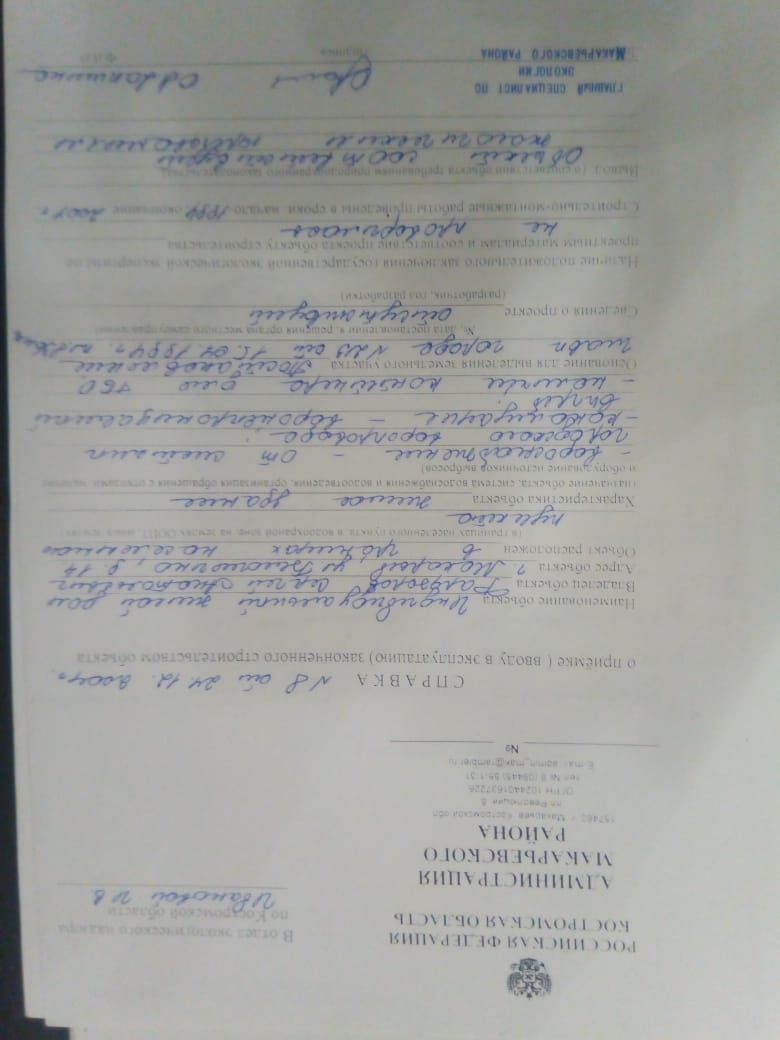 РОССИЙСКАЯ ФЕДЕРАЦИЯ
КОСТРОМСКАЯ ОБЛАСТЬ
АДМИНИСТРАЦИЯ
МАКАРЬЕВСКОГО
РАЙОНА
157460 г. Макарьев Костромской обл
пл Революции 8
ОГРН 1024401637226
тел № 8 (09445) 55-1-31
E-mail admin_mak@rambler.ru
№
В отдел экологического надзора
по Костромской области
Ивановой И В.
СПРАВКА № 8 от 24.12.2004г.
о приёмке ( вводу в эксплуатацию) законченного строительством объекта
Наименование объекта Индивидуальный жилой дом
Владелец объекта Сергей Анатольевич
Адрес объекта г. Макарьев, д. 14
Объект расположен в границах населенного
(в границах населённого пункта, в водоохранной зоне, на землях ООПТ, иных землях)
пункта
Характеристика объекта жилое здание
(назначение объекта, система водоснабжения и водоотведения, организация обращения с отходами, наличие
и оборудование источников выбросов)
- водоснабжение - от системы
городского водопровода;
- канализация - водонепроницаемый
выгреб
- наличие контейнера для ТБО
Основание для выделения земельного участка Постановление
главы города № 213 от 15.04.1994г.
№, дата постановления, решения органа местного самоуправления)
Сведения о проекте отсутствуют
(разработчик, год разработки)
Наличие положительного заключения государственной экологической экспертизы по
проектным материалам и соответствие проекта объекту строительства
не проводилось
Строительно-монтажные работы проведены в сроки: начало 1994 окончание 2004г.
Вывод: ( о соответствии объекта требованиям природоохранного законодательства)
Объект соответствует
экологическим требованиям
ГЛАВНЫЙ СПЕЦИАЛИСТ ПО
ЭКОЛОГИИ
МАКАРЬЕВСКОГО РАЙОНА
Подпись Ф.И.О